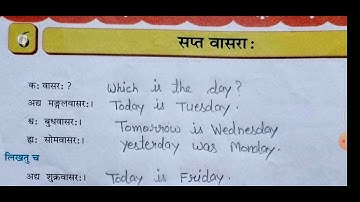 6
सप्त वासराः
कः वासरः ? Which is the day ?
अद्य मङ्गलवासरः। Today is Tuesday.
श्वः बुधवासरः। Tomorrow is Wednesday
ह्यः सोमवासरः। Yesterday was Monday.
लिखतु च
अद्य शुक्रवासरः। Today is Friday.